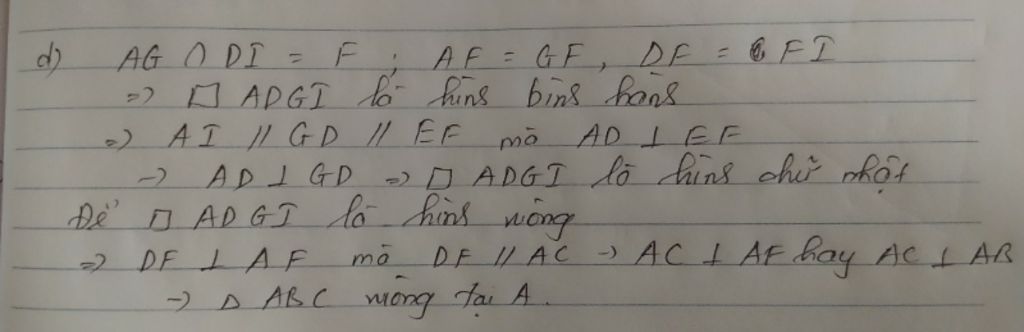 d) AG ∩ DI = F ; AF = GF, DF = FI
=> □ ADGI là hình bình hành
=> AI // GD // EF mà AD ⊥ EF
-> AD ⊥ GD => □ ADGI là hình chữ nhật
Để □ ADGI là hình vuông
=> DF ⊥ AF mà DF // AC -> AC ⊥ AF hay AC ⊥ AB
-> Δ ABC vuông tại A.